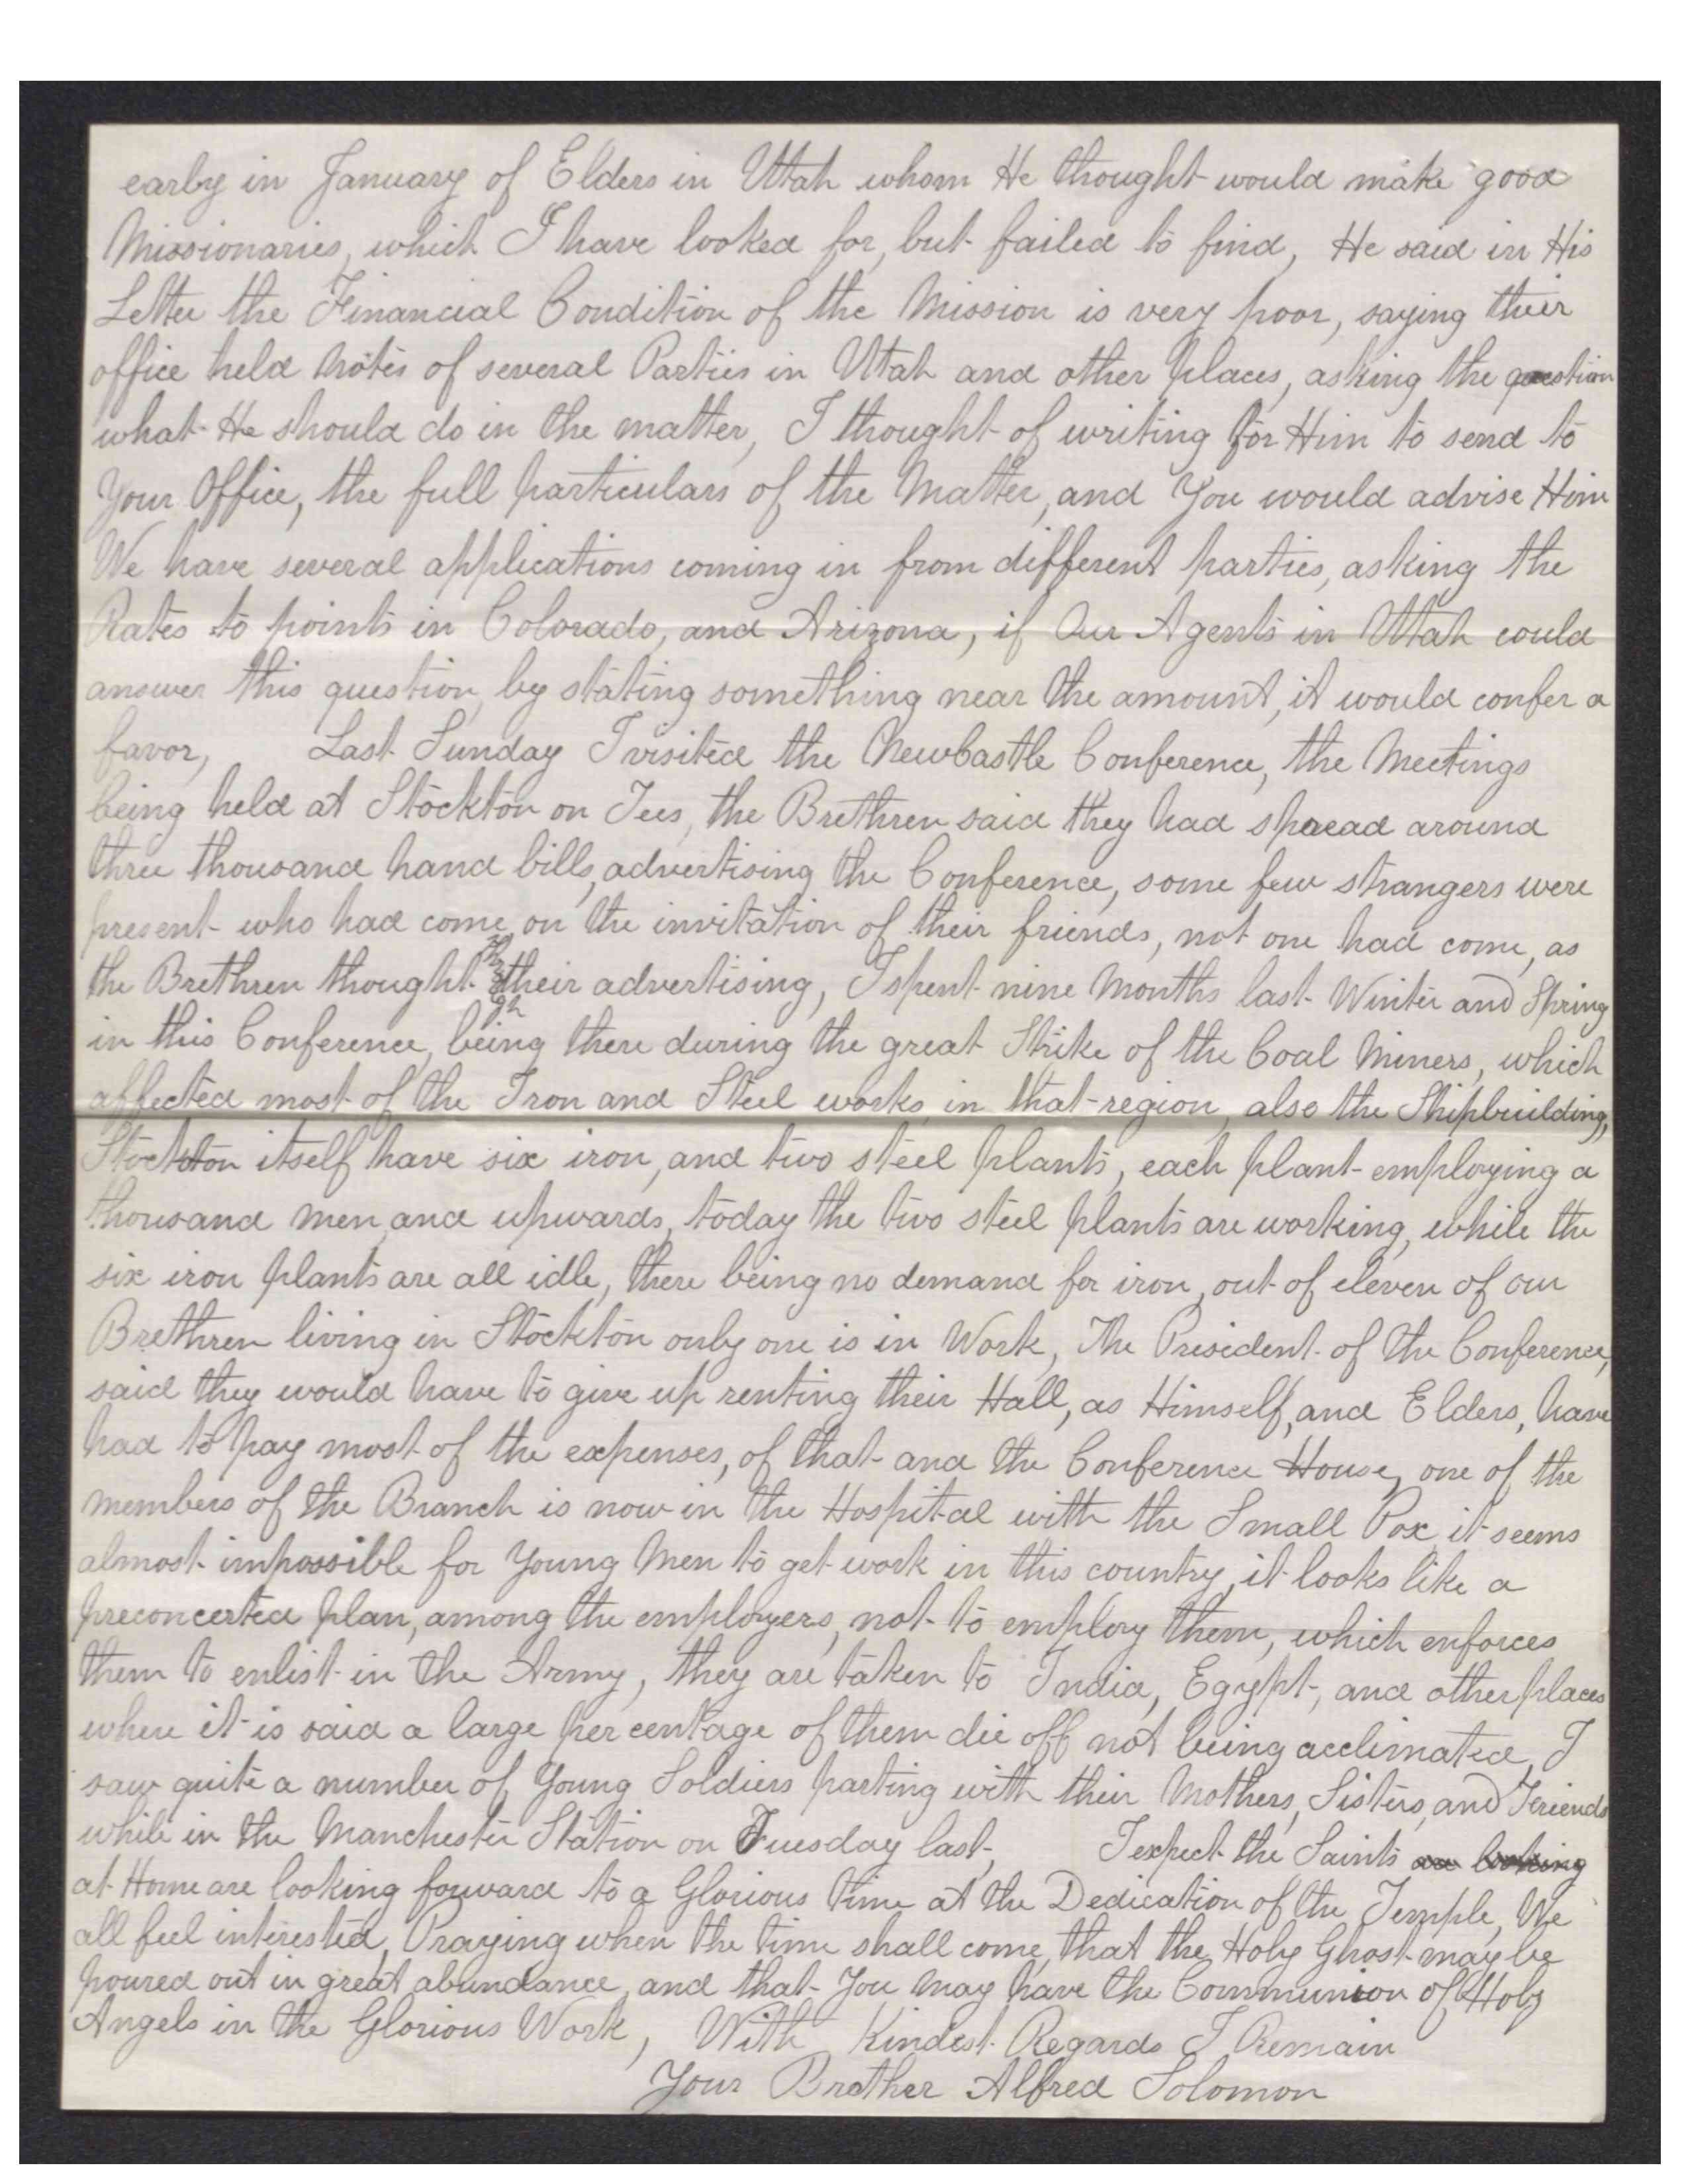 early in January of Elders in Utah whom He thought would make good
Missionaries, which I have looked for, but failed to find, He said in His
Letter the Financial Condition of the Mission is very poor, saying their
office held Notes of several Parties in Utah and other places, asking the question
what He should do in the matter, I thought of writing for Him to send to
Your Office, the full particulars of the Matter, and You would advise Him
We have several applications coming in from different parties, asking the
Rates to points in Colorado, and Arizona, if Our Agents in Utah could
answer this question, by stating something near the amount, it would confer a
favor, Last Sunday I visited the NewCastle Conference, the Meetings
being held at Stockton on Tees, the Brethren said they had spread around
three thousand hand bills, advertising the Conference, some few strangers were
present who had come, on the invitation of their friends, not one had come, as
the Brethren thought through their advertising, I spent nine Months last Winter and Spring
in this Conference, being there during the great Strike of the Coal Miners, which
affected most of the Iron and Steel works, in that region, also the Shipbuilding,
Stockton itself have six iron, and two steel plants, each plant employing a
thousand men, and upwards, today the two steel plants are working, while the
six iron plants are all idle, there being no demand for iron, out of eleven of our
Brethren living in Stockton only one is in Work, The President of the Conference,
said they would have to give up renting their Hall, as Himself, and Elders, have
had to pay most of the expenses, of that and the Conference House, one of the
members of the Branch is now in the Hospital with the Small Pox, it seems
almost impossible for Young Men to get work in this country, it looks like a
preconcerted plan, among the employers, not to employ them, which enforces
them to enlist in the Army, they are taken to India, Egypt, and other places
where it is said a large per centage of them die off not being acclimated, I
saw quite a number of Young Soldiers parting with their Mothers, Sisters, and Friends
while in the Manchester Station on Tuesday last, I expect the Saints are looking
at Home are looking forward to a Glorious time at the Dedication of the Temple, We
all feel interested, Praying when the time shall come, that the Holy Ghost may be
poured out in great abundance, and that You may have the Communion of Holy
Angels in the Glorious Work, With Kindest Regards I Remain
Your Brother Alfred Solomon